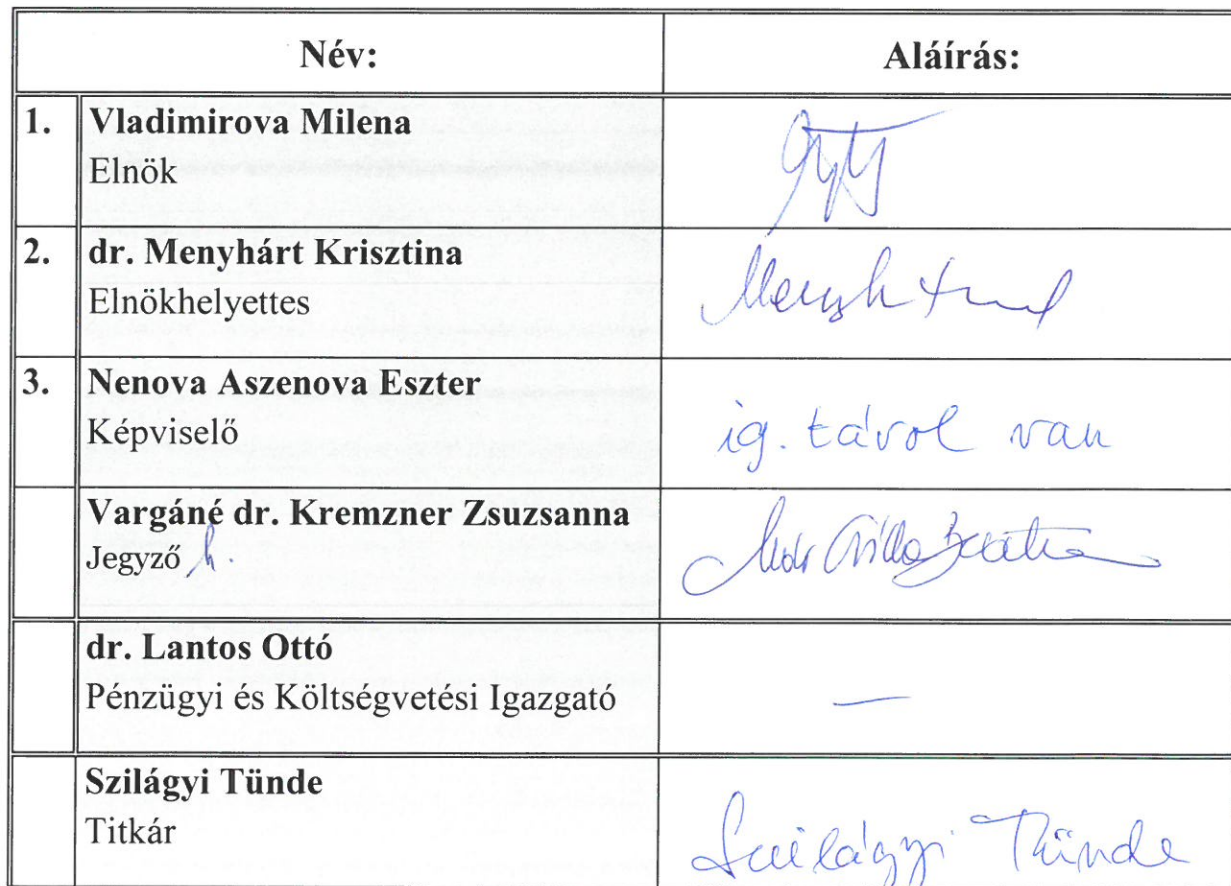 Név: Aláírás:
1. Vladimirova Milena
Elnök
2. dr. Menyhárt Krisztina
Elnökhelyettes
3. Nenova Aszenova Eszter
Képviselő ig. távol van
Vargáné dr. Kremzner Zsuzsanna
Jegyző h.
dr. Lantos Ottó
Pénzügyi és Költségvetési Igazgató —
Szilágyi Tünde
Titkár Szilágyi Tünde